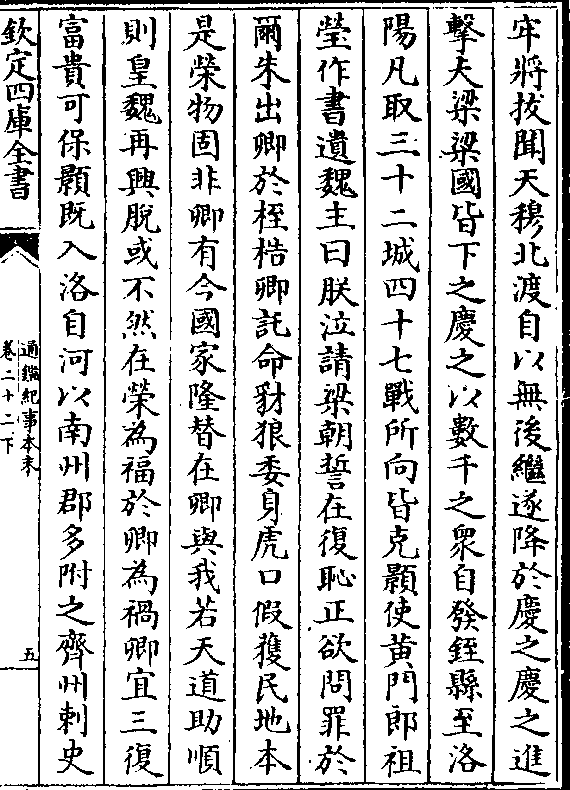 牢將拔聞天穆北渡自以無後繼遂降於慶之慶之進
擊大梁梁國皆下之慶之以數千之衆自發銍縣至洛
陽凡取三十二城四十七戰所向皆克顥使黄門郎祖
瑩作書遺魏主曰朕泣請梁朝誓在復恥正欲問罪於
爾朱出卿於桎梏卿託命豺狼委身虎口假獲民地本
是榮物固非卿有今國家隆替在卿與我若天道助順
則皇魏再興脱或不然在榮為福於卿為禍卿宜三復
富貴可保顥既入洛自河以南州郡多附之齊州刺史
欽定四庫全書
通鑑紀事本末
卷二十二下
五